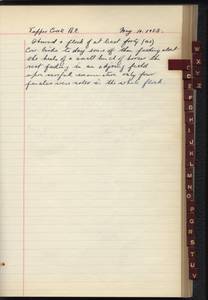 Tapper Cove B.C. May 14, 1923.
Observed a flock of at least forty (40)
Cow birds to day some of them feeding about
the heels of a small bunch of horses the
rest feeding in an adjoining field
upon careful examination only few
females were noted in the whole flock.
W
X
Y
Z
C
D
E
F
G
H
I
J
K
L
M
N
O
P
Q
R
S
T
U
V